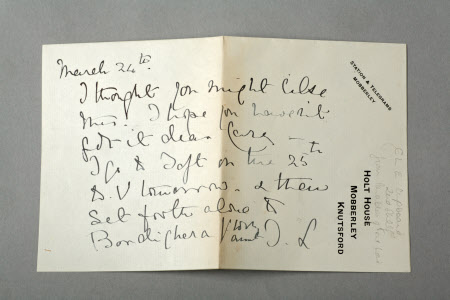 March 24th.
I thought you might like
this. I hope you haven't
got it dear Carey —
I go to Toft on the 25th
D.V tomorrow. & then
set forth alone to
Bordighera Yr aunt I. L
STATION & TELEGRAMS
MOBBERLEY
HOLT HOUSE
MOBBERLEY
KNUTSFORD